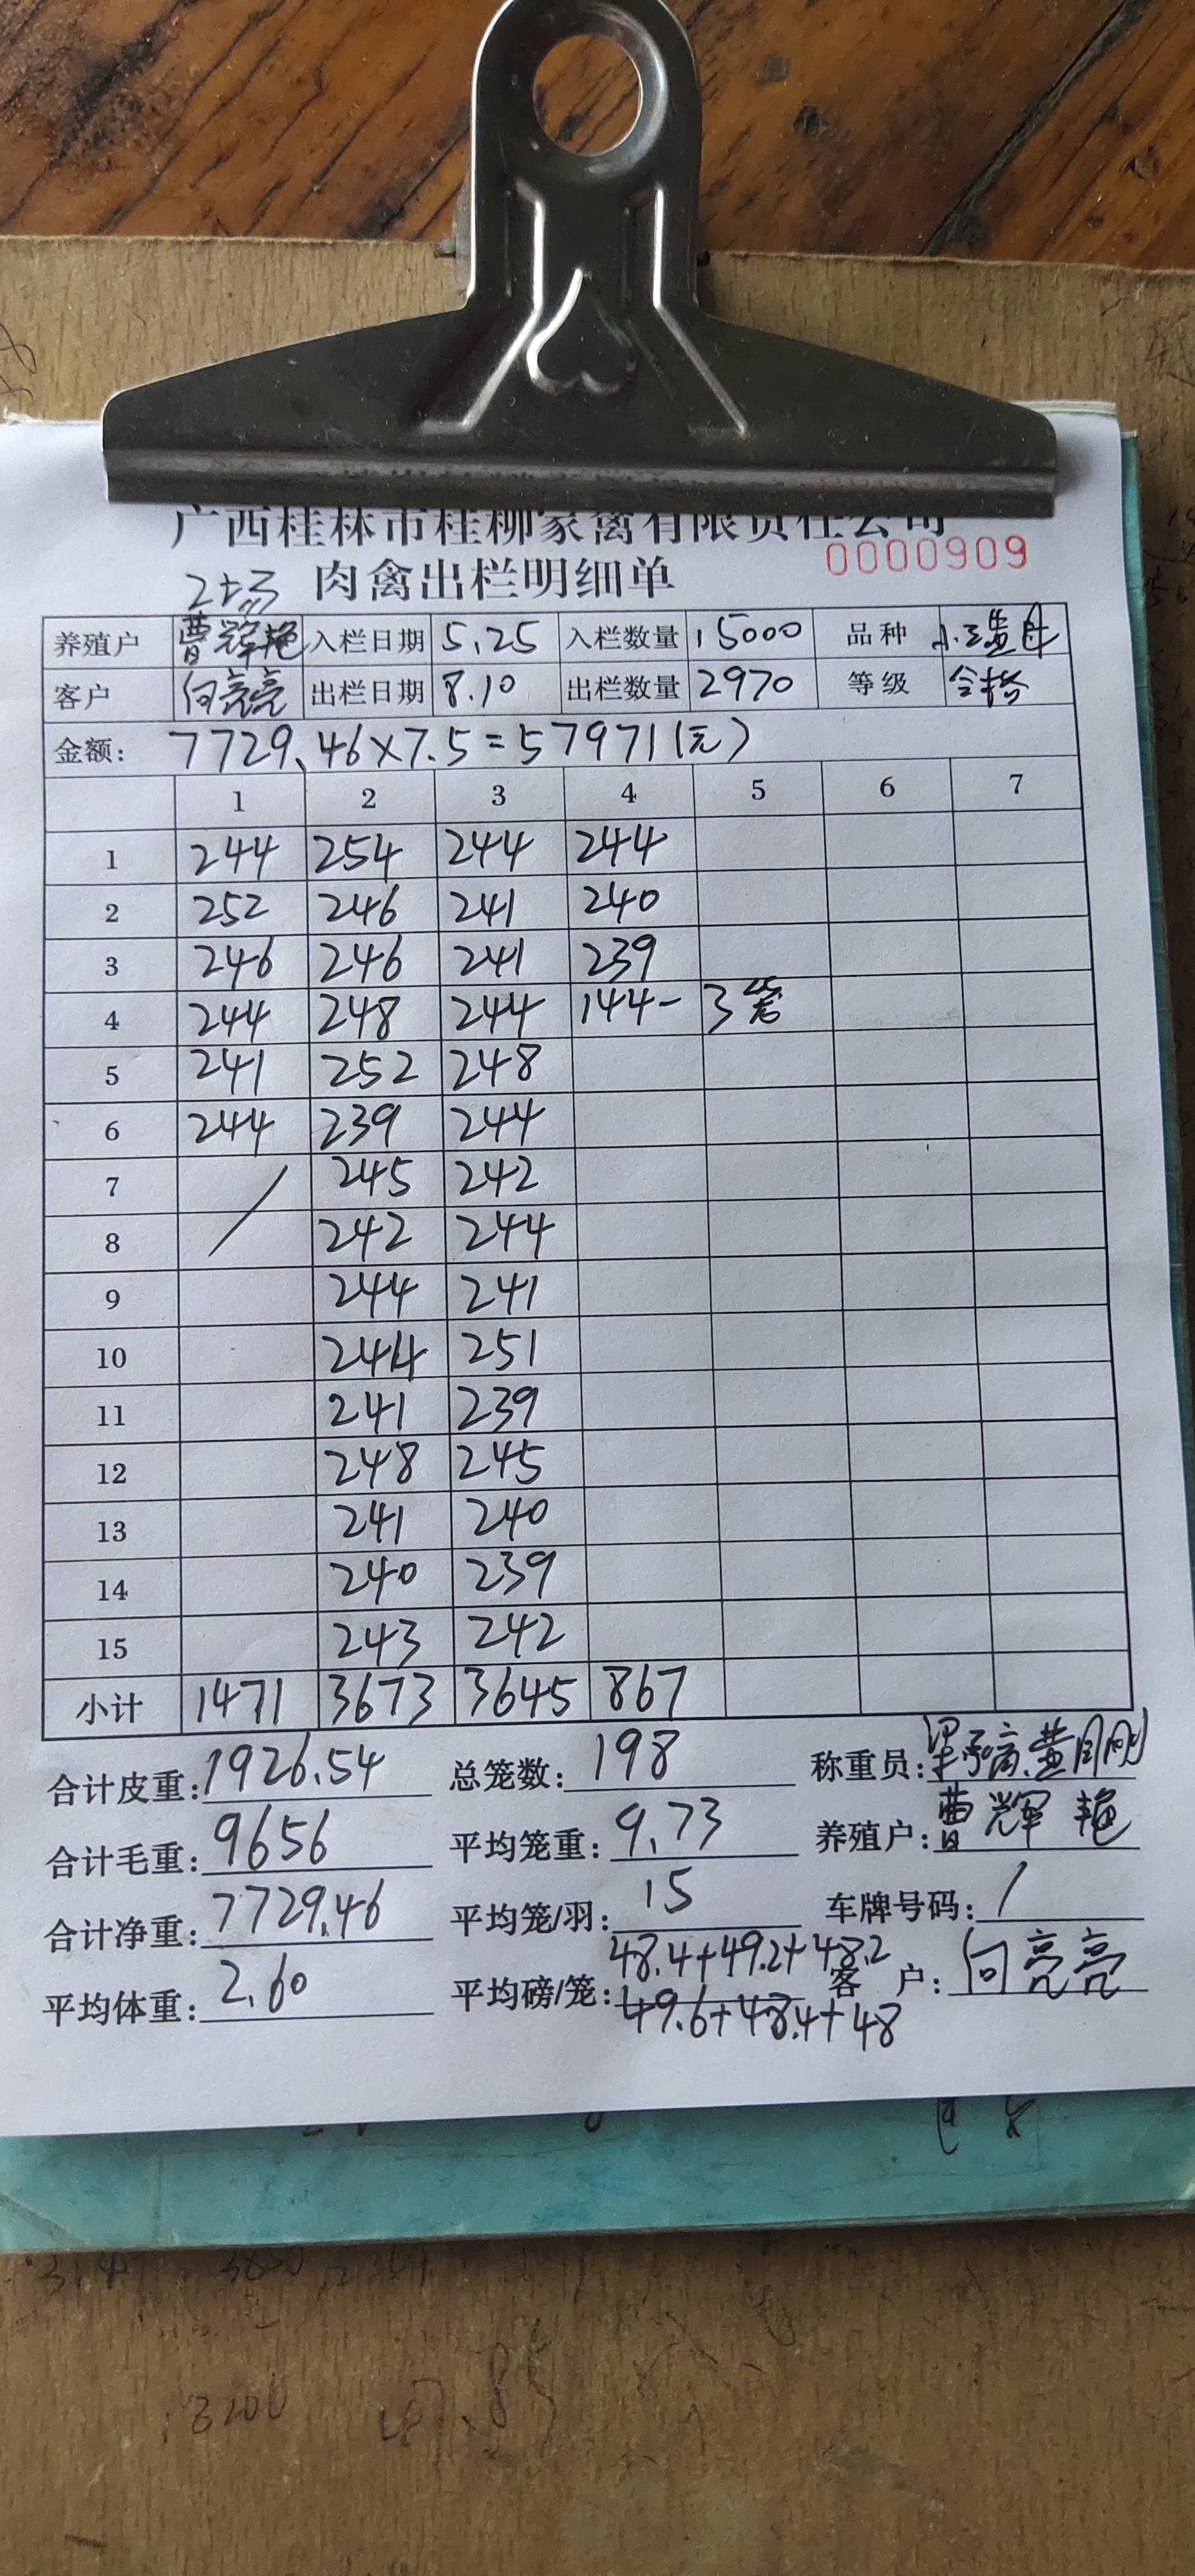 广西桂林市桂柳家禽有限责任公司
0000909
肉禽出栏明细单
养殖户 曹辉艳 入栏日期 5.25 入栏数量 15000 品种
客户 向亮亮 出栏日期 8.10 出栏数量 2970 等级 合格
金额: 7729.46×7.5=57971(元)
1 2 3 4 5 6 7
1 244 254 244 244
2 252 246 241 240
3 246 246 241 239
4 244 248 244 144- 3笼
5 241 252 248
6 244 239 244
7 245 242
8 242 244
9 244 241
10 244 251
11 241 239
12 248 245
13 241 240
14 240 239
15 243 242
小计 1471 3673 3645 867
合计皮重: 1926.54 总笼数: 198 称重员:
合计毛重: 9656 平均笼重: 9.73 养殖户: 曹辉艳
合计净重: 7729.46 平均笼/羽: 15 车牌号码: /
48.4+49.2+48.2
平均体重: 2.60 平均磅/笼: 客户: 向亮亮
49.6+48.4+48
3200